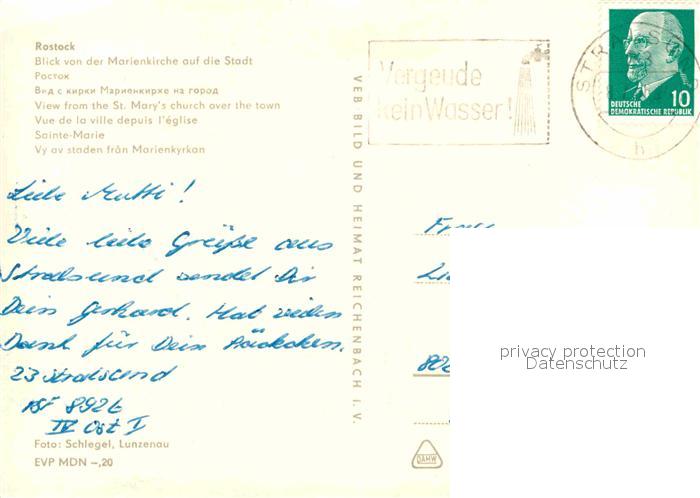 Rostock
Blick von der Marienkirche auf die Stadt
Росток
Вид с кирки Мариенкирхе на город
View from the St. Mary's church over the town
Vue de la ville depuis l'église
Sainte-Marie
Vy av staden från Marienkyrkan
Liebe Mutti!
Viele liebe Grüße aus
Stralsund sendet Dir
Dein Gerhard. Hab vielen
Dank für Dein Päckchen.
23 Stralsund
PSF 8926
IV Ost I
Foto: Schlegel, Lunzenau
EVP MDN –,20
VEB BILD UND HEIMAT REICHENBACH I. V.
Vergeude
kein Wasser!
STRALS
h
10
DEUTSCHE
DEMOKRATISCHE REPUBLIK
802
DAMW
privacy protection
Datenschutz